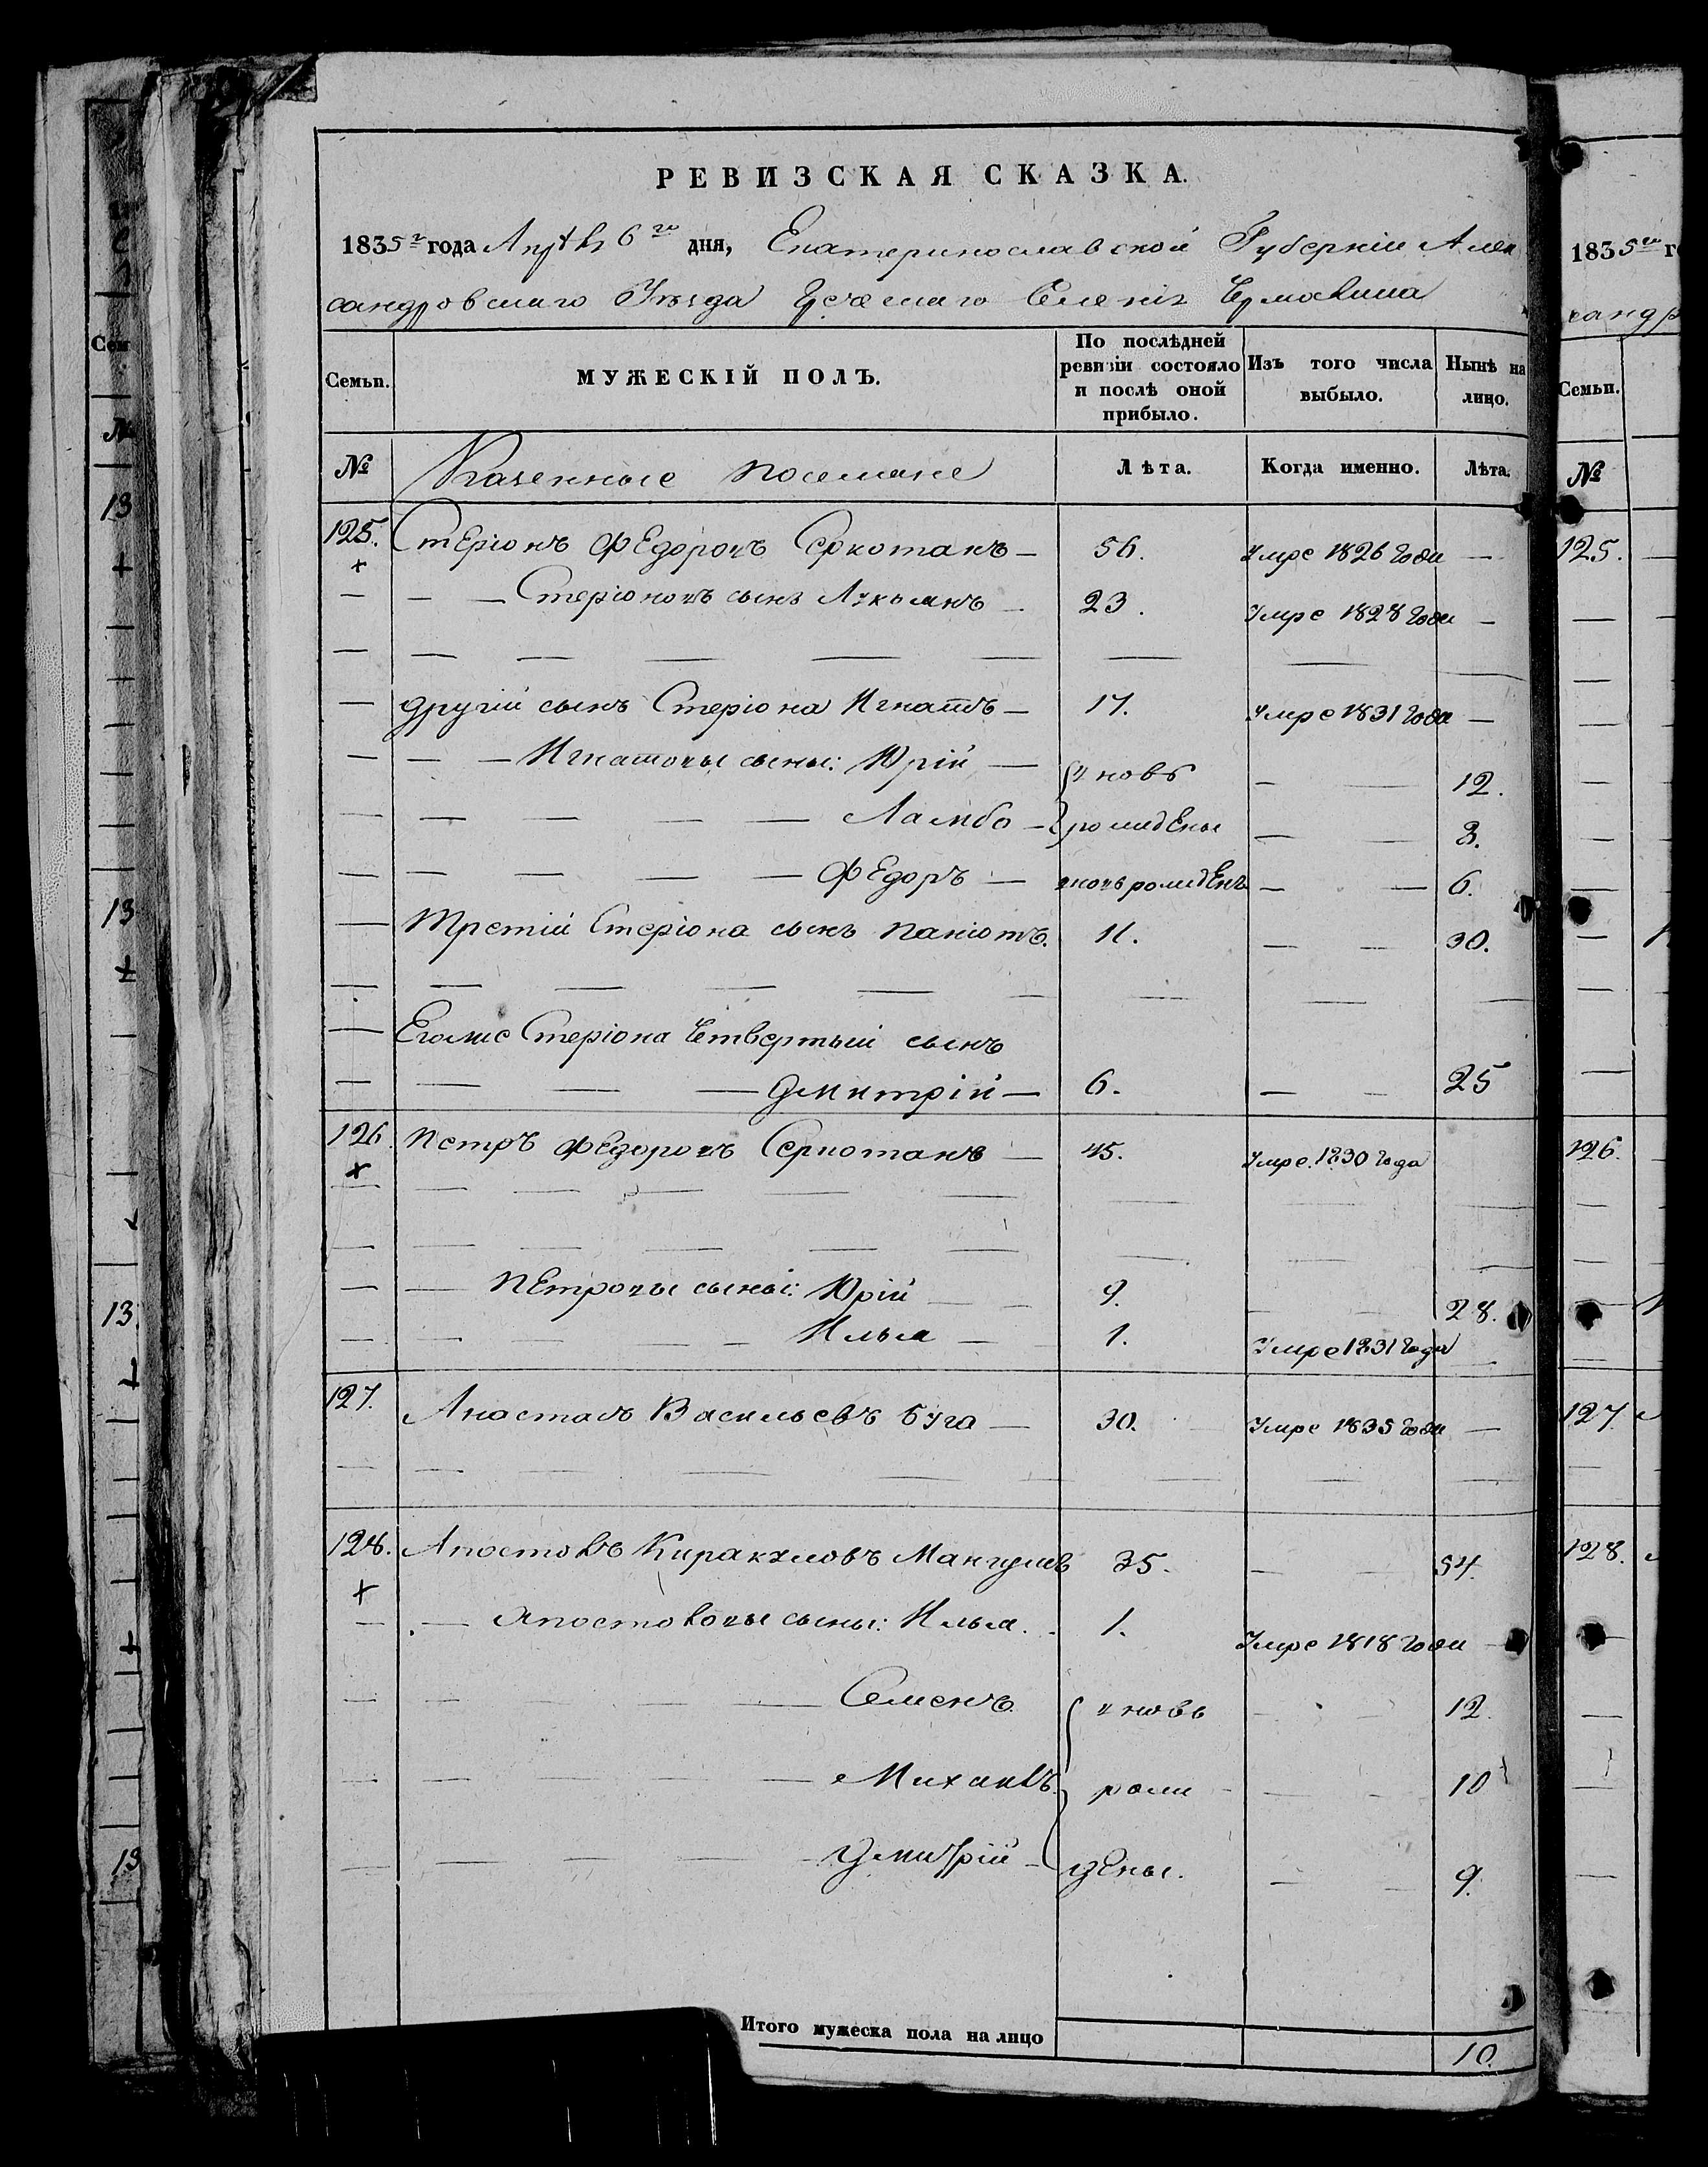 РЕВИЗСКАЯ СКАЗКА.
1835 г года Апрѣля 6го дня, Екатеринославской Губерніи Алек
сандровскаго Уѣзда Греческаго Селенія Чермалика
Семьи. МУЖЕСКІЙ ПОЛЪ. По послѣдней ревизіи состояло и послѣ оной прибыло. Изъ того числа выбыло. Нынѣ на лицо.
№ Казенные поселяне Лѣта. Когда именно. Лѣта.
125. Стеріонъ Федоровъ Серкотанъ — 56. Умре 1826 года —
— — — Стеріоновъ сынъ Лукъянъ — 23. Умре 1828 года —
— другій сынъ Стеріона Игнатъ — 17. Умре 1831 года —
— — — Игнатовы сыны: Юрій — вновь — — 12.
— — — — — Ламбо — рожденые — — 8.
— — — — — Федоръ — вновь рожденъ — — 6.
— Третій Стеріона сынъ Паніотъ. 11. — — 30.
— Стеріона Четвертый сынъ
— — — — Дмитрій — 6. — — 25
126. Петръ Федоровъ Серкотанъ — 45. Умре 1830 года
— — Петровы сыны: Юрій — — 9. — — 28.
— — — — Илья — 1. Умре 1831 года —
127. Анастасъ Васильевъ Буга — 30. Умре 1835 года —
128. Апостолъ Кираковъ Мангушъ 35. — — 54.
— — Апостоловы сыны: Илья. 1. Умре 1818 года —
— — — — — Семенъ вновь — — 12.
— — — — — Михаилъ рож — — 10
— — — — Дмитрій — дены. — — 9.
Итого мужеска пола на лицо 10.
1835го г
сандр
Семьи.
№
125.
126.
127.
128.